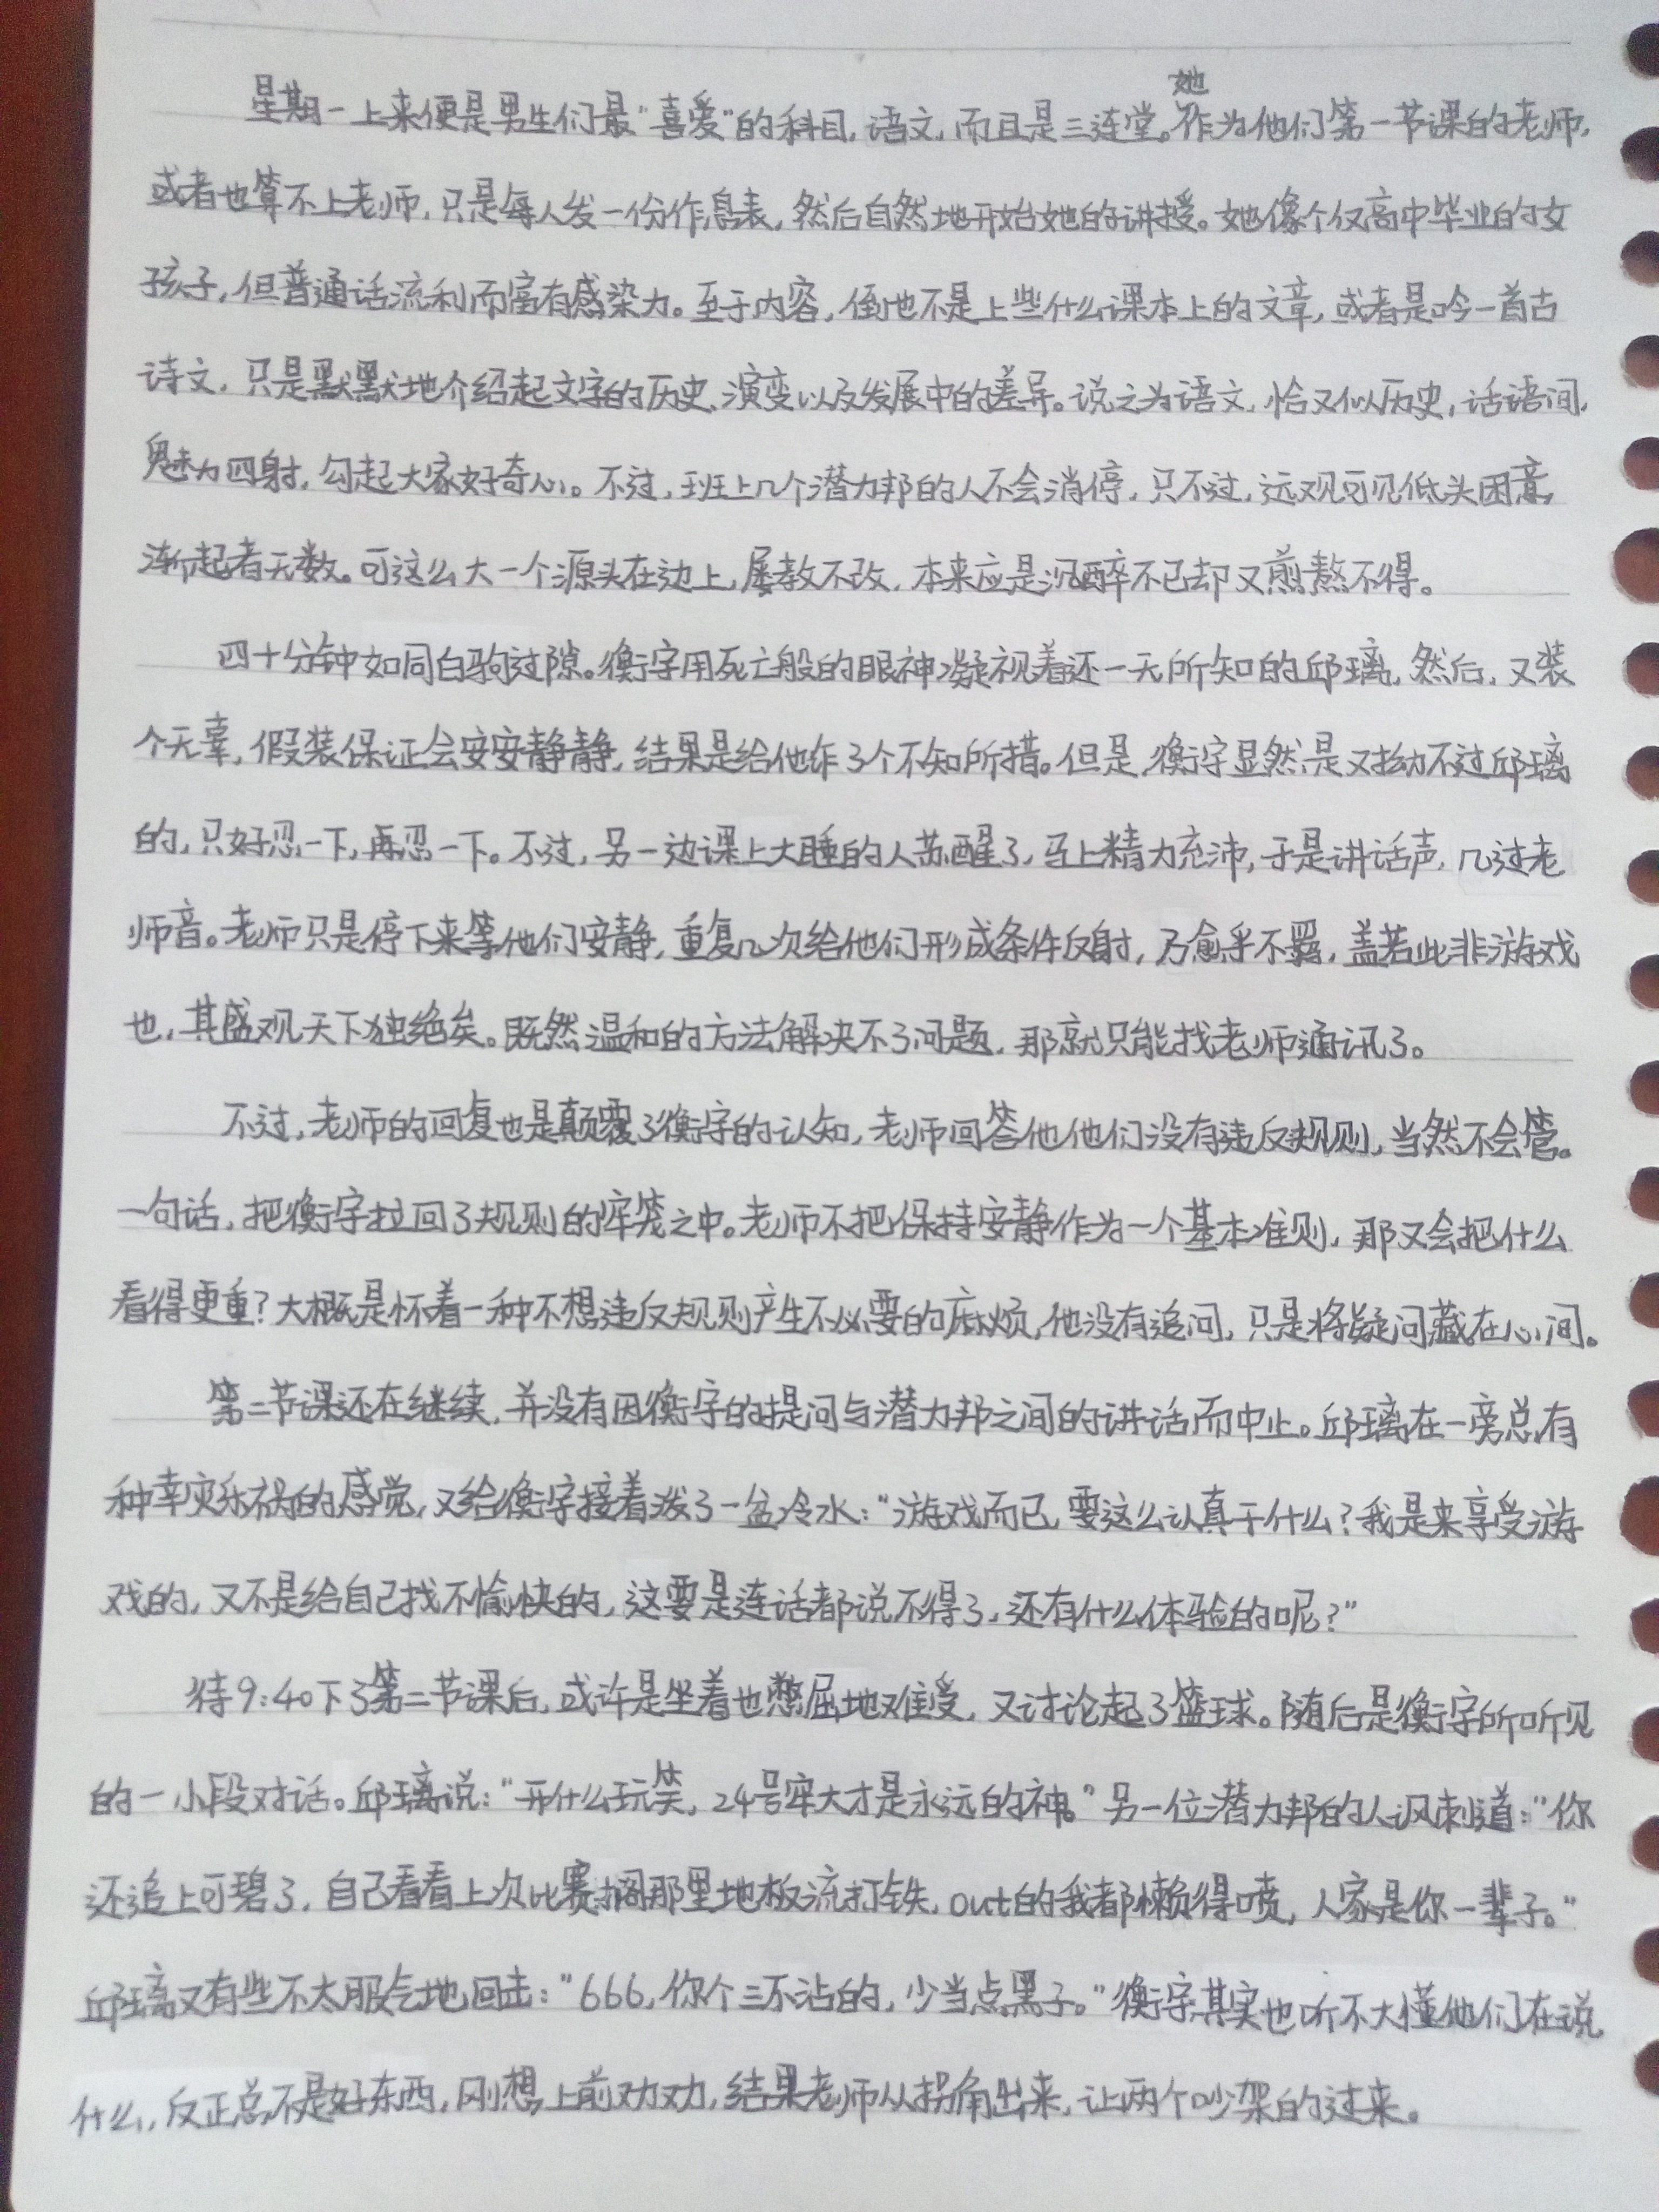 星期一上来便是男生们最“喜爱”的科目,语文,而且是三连堂。她作为他们第一节课的老师,
或者也算不上老师,只是每人发一份作息表,然后自然地开始她的讲授。她像个仅高中毕业的女
孩子,但普通话流利而富有感染力。至于内容,倒也不是上些什么课本上的文章,或者是吟一首古
诗文,只是默默地介绍起文字的历史、演变以及发展中的差异。说之为语文,恰又似历史,话语间,
魅力四射,勾起大家好奇心。不过,班上几个潜力邦的人不会消停,只不过,远观可见低头困意,
渐起者无数。可这么大一个源头在边上,屡教不改,本来应是沉醉不已却又煎熬不得。
四十分钟如同白驹过隙。衡宇用死亡般的眼神凝视着还一无所知的邱璃,然后,又装
个无辜,假装保证会安安静静,结果是给他作了个不知所措。但是,衡宇显然是又拗不过邱璃
的,只好忍一下,再忍一下。不过,另一边课上大睡的人苏醒了,马上精力充沛,于是讲话声,几过老
师音。老师只是停下来等他们安静,重复几次给他们形成条件反射,乃愈乎不羁,盖若此非游戏
也,其盛观天下独绝矣。既然温和的方法解决不了问题,那就只能找老师通讯了。
不过,老师的回复也是颠覆了衡宇的认知,老师回答他他们没有违反规则,当然不会管。
一句话,把衡宇拉回了规则的牢笼之中。老师不把保持安静作为一个基本准则,那又会把什么
看得更重?大概是怀着一种不想违反规则产生不必要的麻烦,他没有追问,只是将疑问藏在心间。
第二节课还在继续,并没有因衡宇的提问与潜力邦之间的讲话而中止。邱璃在一旁总有
种幸灾乐祸的感觉,又给衡宇接着泼了一盆冷水:“游戏而已,要这么认真干什么?我是来享受游
戏的,又不是给自己找不愉快的,这要是连话都说不得了,还有什么体验的呢?”
待9:40下了第二节课后,或许是坐着也憋屈地难受,又讨论起了篮球。随后是衡宇所听见
的一小段对话。邱璃说:“开什么玩笑,24号牢大才是永远的神。”另一位潜力邦的人讽刺道:“你
还追上可碧了,自己看看上次比赛搁那里地板流打铁,out的我都懒得喷,人家是你一辈子。”
邱璃又有些不太服气地回击:“666,你个三不沾的,少当点黑子。”衡宇其实也听不大懂他们在说
什么,反正总不是好东西,刚想上前劝劝,结果老师从拐角出来,让两个吵架的过来。